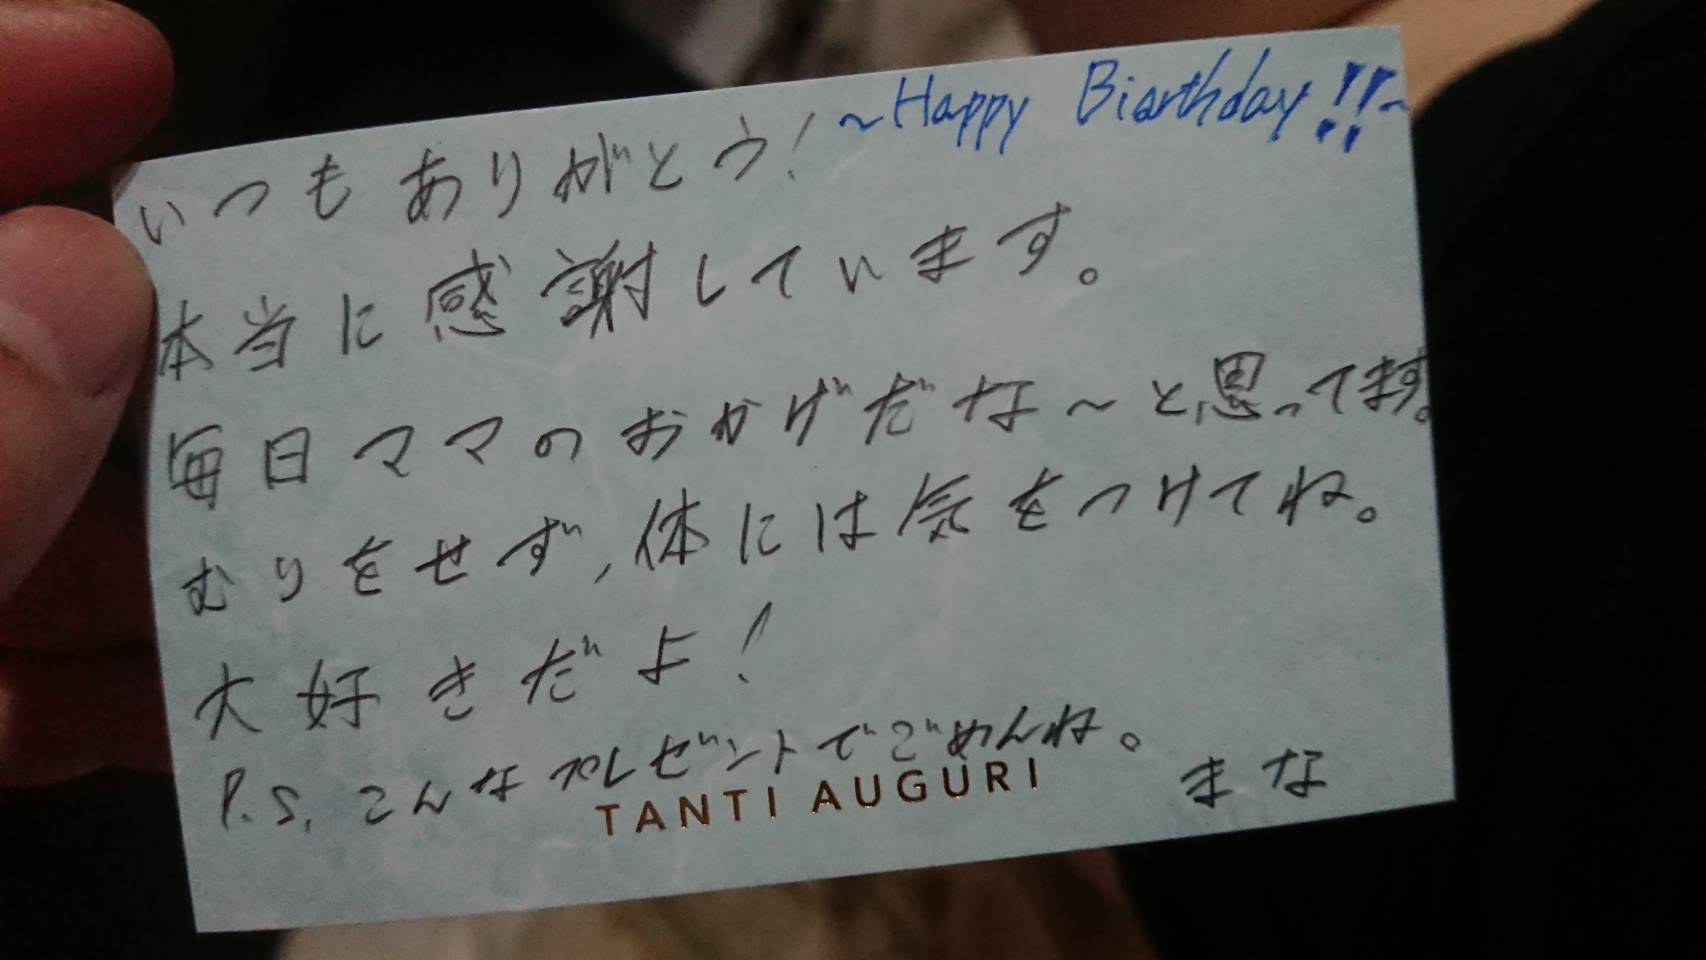 ~Happy Biarthday!!~
いつもありがとう!
本当に感謝しています。
毎日ママのおかげだな〜と思ってます。
むりをせず、体には気をつけてね。
大好きだよ!
P.S. こんなプレゼントでごめんね。
まな
TANTI AUGURI